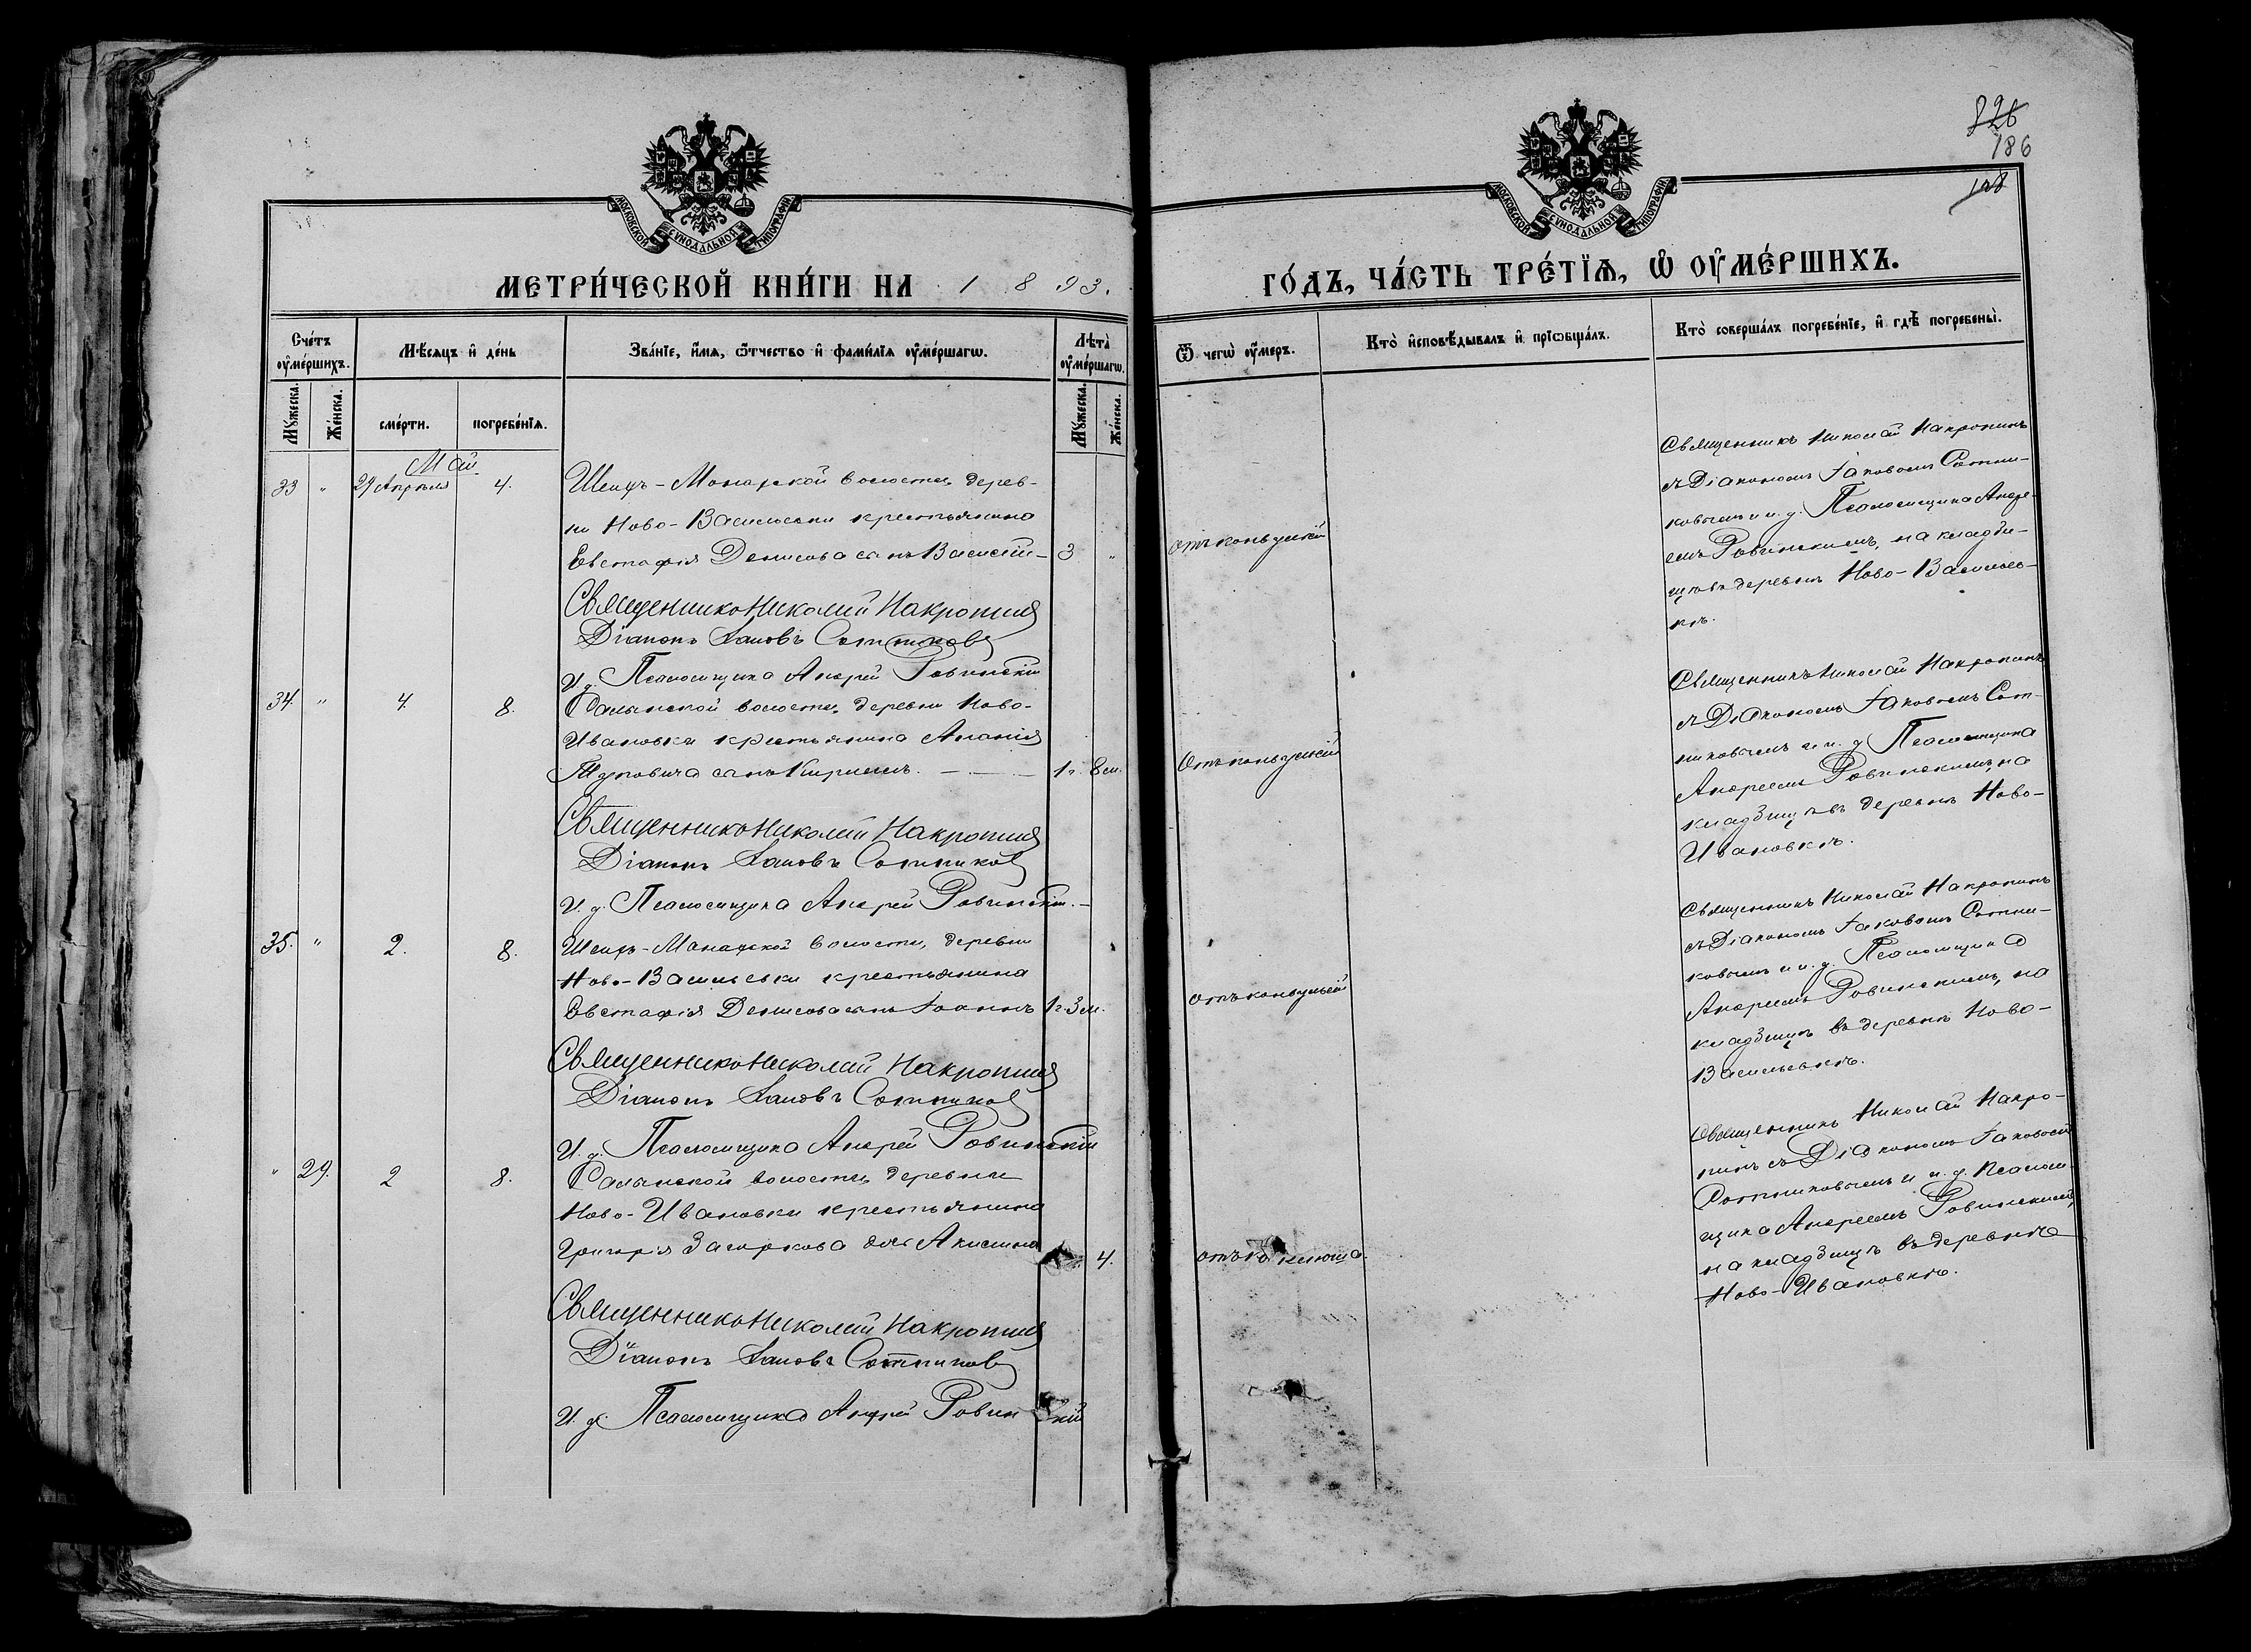 826
186
108
МОСКОВСКОЙ СѴНОДАЛЬНОЙ ТИПОГРАФІИ
МОСКОВСКОЙ СѴНОДАЛЬНОЙ ТИПОГРАФІИ
МЕТРИ́ЧЕСКОЙ КНИ́ГИ НА 1893.
ГО́ДЪ, ЧА́СТЬ ТРЕ́ТЇѦ, Ѡ҆ ОУ҆МЕ́РШИХЪ.
Сче́тъ оу҆ме́ршихъ.
Мѣ́сѧцъ и҆ де́нь
Зва́нїе, и҆́мѧ, ѿ́тчество и҆ фами́лїѧ оу҆ме́ршагѡ.
Лѣ́та оу҆ме́ршагѡ.
Ѿ чегѡ̀ оу҆́меръ.
Кто̀ и҆сповѣ́дывалъ и҆ прїѡбща́лъ.
Кто̀ соверша́лъ погребе́нїе, и҆ гдѣ̀ погребены̀.
Мꙋ́жеска.
Же́нска.
сме́рти.
погребе́нїѧ.
Мꙋ́жеска.
Же́нска.
Май
33 " 29 Апрѣля 4.
Шеицъ-Монарской волости, дерев-
ни Ново-Васильевки крестьянина
Евстафія Денисова сынъ Василій- 3 "
отъ конвульсій
Священникъ Николай Накропинъ
съ Діакономъ Іаковомъ Сотни-
ковымъ и и. д. Псаломщика Андре-
емъ Ровинскимъ, на кладби-
щѣ въ деревнѣ Ново-Васильев-
кѣ.
Священникъ Николай Накропинъ
Діаконъ Іаковъ Сотниковъ
И. д. Псаломщика Андрей Ровинскій
34. " 4. 8.
Салынской волости, деревни Ново-
Ивановки крестьянина Ананія
сынъ Кириллъ. - - - 1 г. 8 м.
Отъ конвульсій
Священникъ Николай Накропинъ
съ Діакономъ Іаковомъ Сот-
никовымъ и и. д. Псаломщика
Андреемъ Ровинскимъ, на
кладбищѣ въ деревнѣ Ново-
Ивановкѣ.
Священникъ Николай Накропинъ
Діаконъ Іаковъ Сотниковъ
И. д. Псаломщика Андрей Ровинскій.-
35. " 2. 8.
Шеицъ-Монарской волости, деревни
Ново-Васильевки крестьянина
Евстафія Денисова сынъ Іоаннъ 1 г. 3 м.
отъ конвульсій
Священникъ Николай Накропинъ
съ Діакономъ Іаковомъ Сотни-
ковымъ и и. д. Псаломщика
Андреемъ Ровинскимъ, на
кладбищѣ въ деревнѣ Ново-
Васильевкѣ.
Священникъ Николай Накропинъ
Діаконъ Іаковъ Сотниковъ
И. д. Псаломщика Андрей Ровинскій
" 29. 2 8.
Салынской волости, деревни
Ново-Ивановки крестьянина
Григорія дочь Акилина 4.
отъ коклюша.
Священникъ Николай Накро-
пинъ съ Діакономъ Іаковомъ
Сотниковымъ и и. д. Псалом-
щика Андреемъ Ровинскимъ,
на кладбищѣ въ деревнѣ
Ново-Ивановкѣ.
Священникъ Николай Накропинъ
Діаконъ Іаковъ Сотниковъ
И. д. Псаломщика Андрей Ровинскій